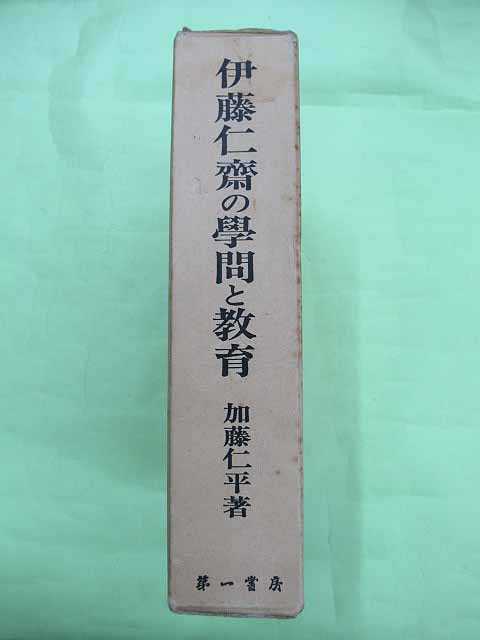 伊藤仁齋の學問と教育
加藤仁平著
第一書房